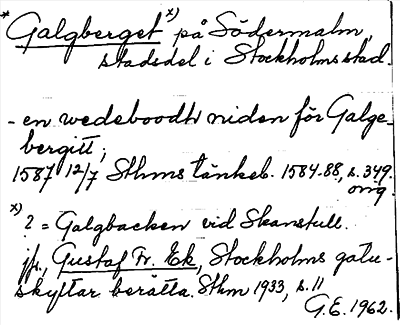 * Galgberget x), på Södermalm,
stadsdel i Stockholms stad.
- en wedeboodh niden för Galge-
bergitt;
1587 12/7 Sthms tänkeb. 1584-88, s. 349.
orig.
x) ? = Galgbacken vid Skanstull.
jfr, Gustaf Fr. Ek, Stockholms gatu-
skyltar berätta. Sthm 1933, s. 11
G.E. 1962.